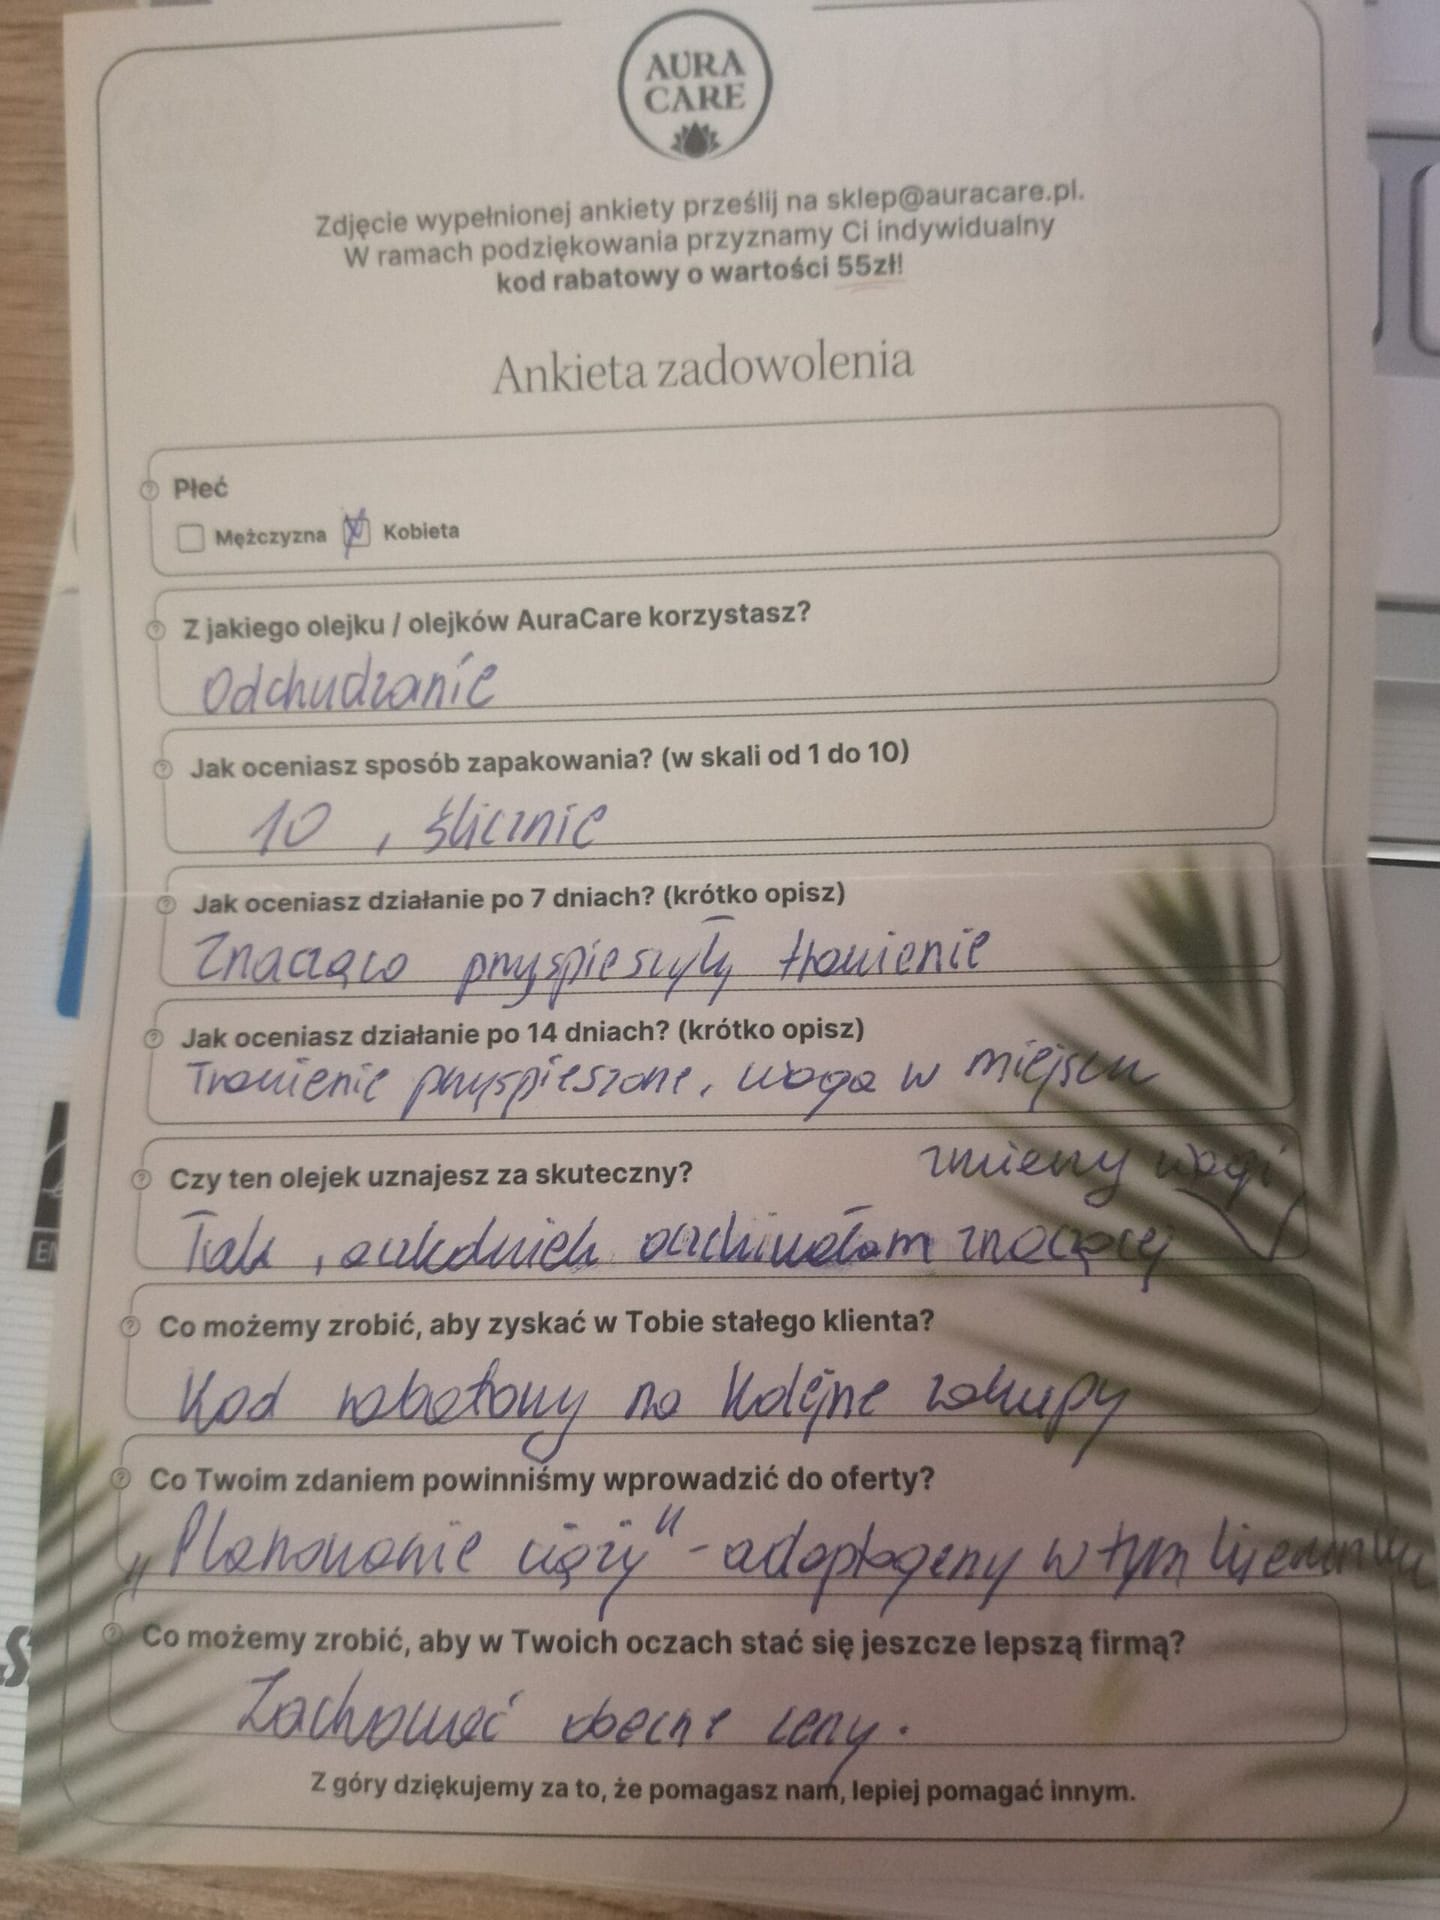 AURA
CARE
Zdjęcie wypełnionej ankiety prześlij na sklep@auracare.pl.
W ramach podziękowania przyznamy Ci indywidualny
kod rabatowy o wartości 55zł!
Ankieta zadowolenia
Płeć
Mężczyzna Kobieta
Z jakiego olejku / olejków AuraCare korzystasz?
Odchudzanie
Jak oceniasz sposób zapakowania? (w skali od 1 do 10)
10, ślicznie
Jak oceniasz działanie po 7 dniach? (krótko opisz)
Znacząco przyspieszyły trawienie
Jak oceniasz działanie po 14 dniach? (krótko opisz)
Trawienie przyspieszone, waga w miejscu
Czy ten olejek uznajesz za skuteczny?
Tak, aczkolwiek oczekiwałam znaczącej
zmiany wagi
Co możemy zrobić, aby zyskać w Tobie stałego klienta?
Kod rabatowy na kolejne zakupy
Co Twoim zdaniem powinniśmy wprowadzić do oferty?
„Planowanie ciąży" - adaptogeny w tym
Co możemy zrobić, aby w Twoich oczach stać się jeszcze lepszą firmą?
Zachować obecne ceny.
Z góry dziękujemy za to, że pomagasz nam, lepiej pomagać innym.